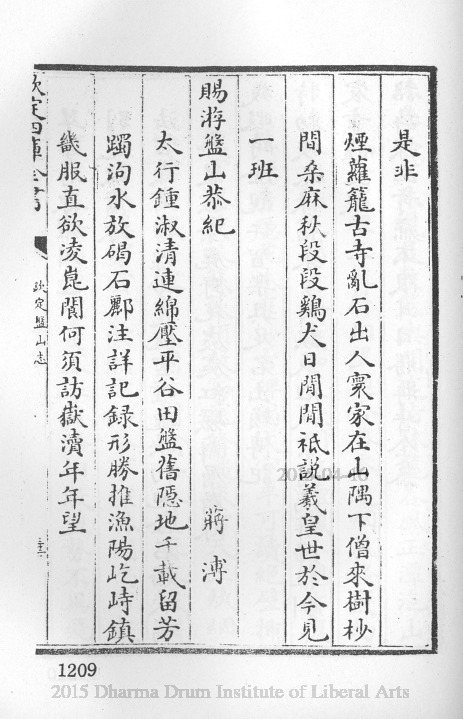 是非
煙蘿籠古寺亂石出人寰家在山隅下僧來樹杪
間桑麻秋段段鷄犬日閒閒祗説羲皇世於今見
一班
賜游盤山恭紀
蔣溥
太行鍾淑清連綿壓平谷田盤舊隱地千載留芳
躅泃水放碣石酈注詳記録形勝推漁陽屹峙鎮
畿服直欲凌崑閬何須訪嶽瀆年年望
欽定四庫全書
欽定盤山志
1209
2015 Dharma Drum Institute of Liberal Arts